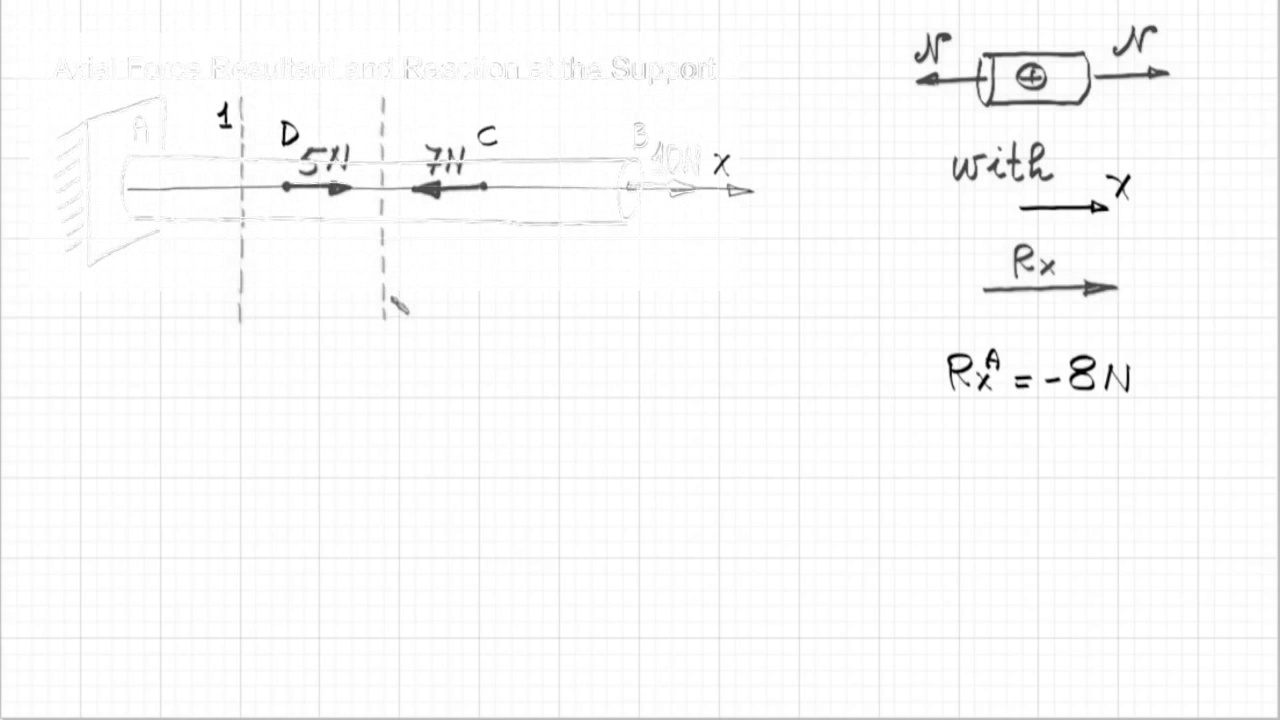 Axial Force Resultant and Reaction at the Support
A
1
D
5N
7N
C
B
10N
X
N
N
+
with
X
Rx
Rx^A = -8N